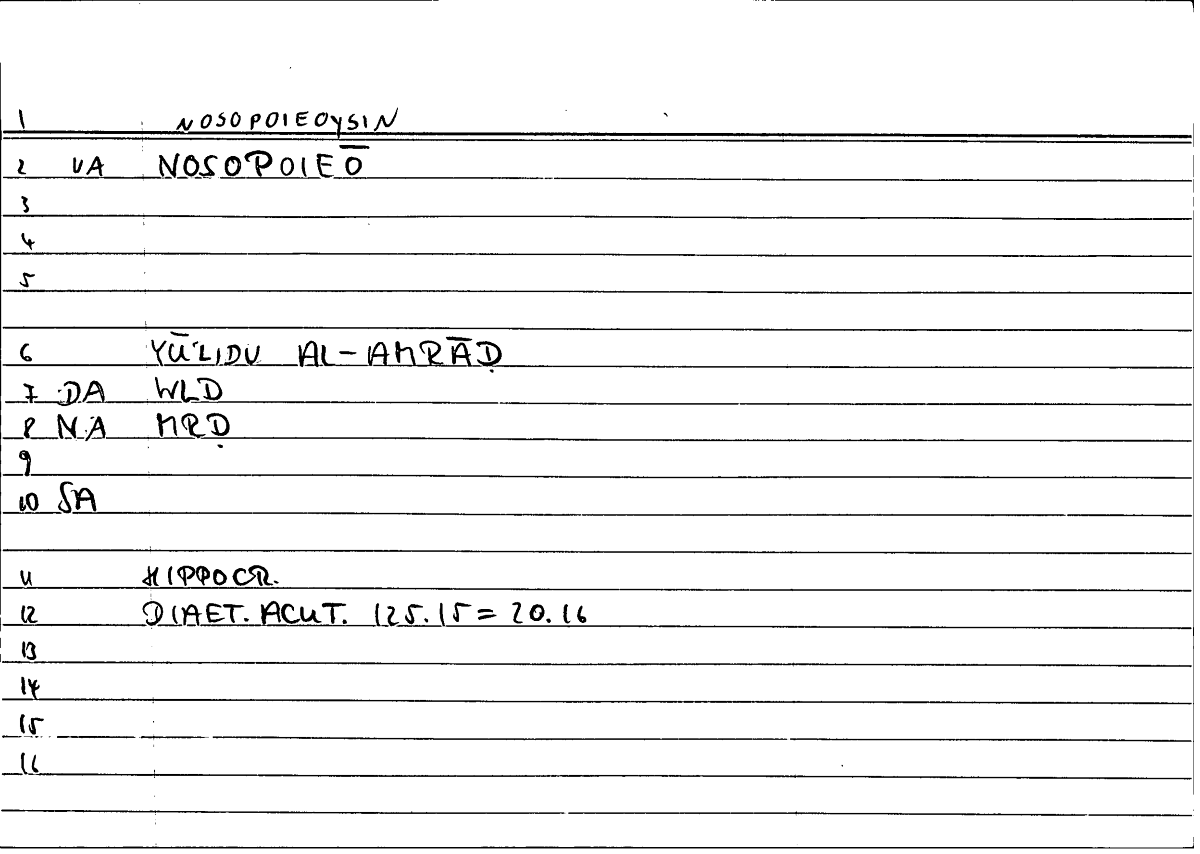 1 NOSOPOIEOYSIN
2 VA NOSOPOIEŌ
3
4
5
6 YŪLIDU AL-AMRĀḌ
7 DA WLD
8 NA MRḌ
9
10 SA
11 HIPPOCR.
12 DIAET. ACUT. 125.15 = 20.16
13
14
15
16